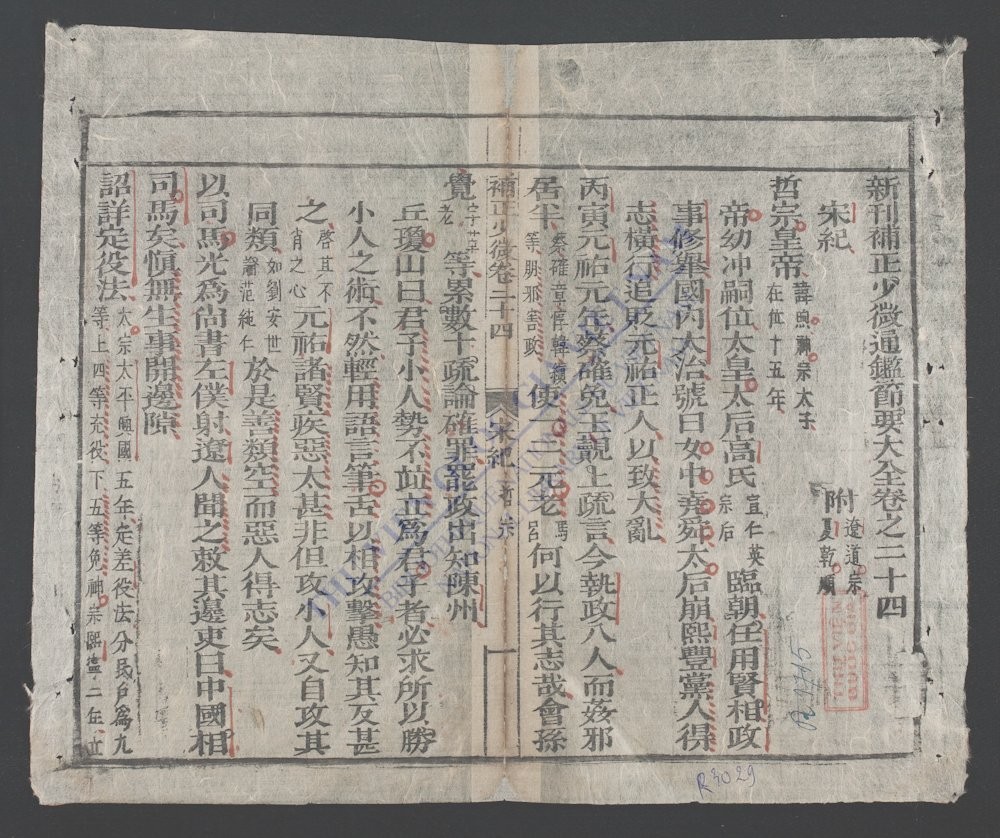 新刊補正少微通鑑節要大全卷之二十四
宋紀 附 遼道宗 夏乾順
哲宗皇帝 諱煦神宗太子 在位十五年
帝幼冲嗣位太皇太后高氏 宣仁英宗后 臨朝任用賢相政
事修舉國內大治號曰女中堯舜太后崩熙豐黨人得
志橫行追貶元祐正人以致大亂
丙寅元祐元年蔡確免王覿上疏言今執政八人而姦邪
居半 蔡確章惇韓縝 等朋邪害政 使一二元老 馬呂 何以行其志哉會孫
補正少微卷二十四 宋紀 哲宗 一
覺 字莘老 等累數十疏論確罪罷政出知陳州
丘瓊山曰君子小人勢不並立爲君子者必求所以勝
小人之術不然輕用語言筆舌以相攻擊愚知其反甚
之 啓其不肖之心 元祐諸賢疾惡太甚非但攻小人又自攻其
同類 如劉安世論范純仁 於是善類空而惡人得志矣
以司馬光爲尙書左僕射遼人聞之敕其邊吏曰中國相
司馬矣愼無生事開邊隙
詔詳定役法 太宗太平興國五年定差役法分民戶爲九 等上四等充役下五等免神宗熙寧二年立
R.2029